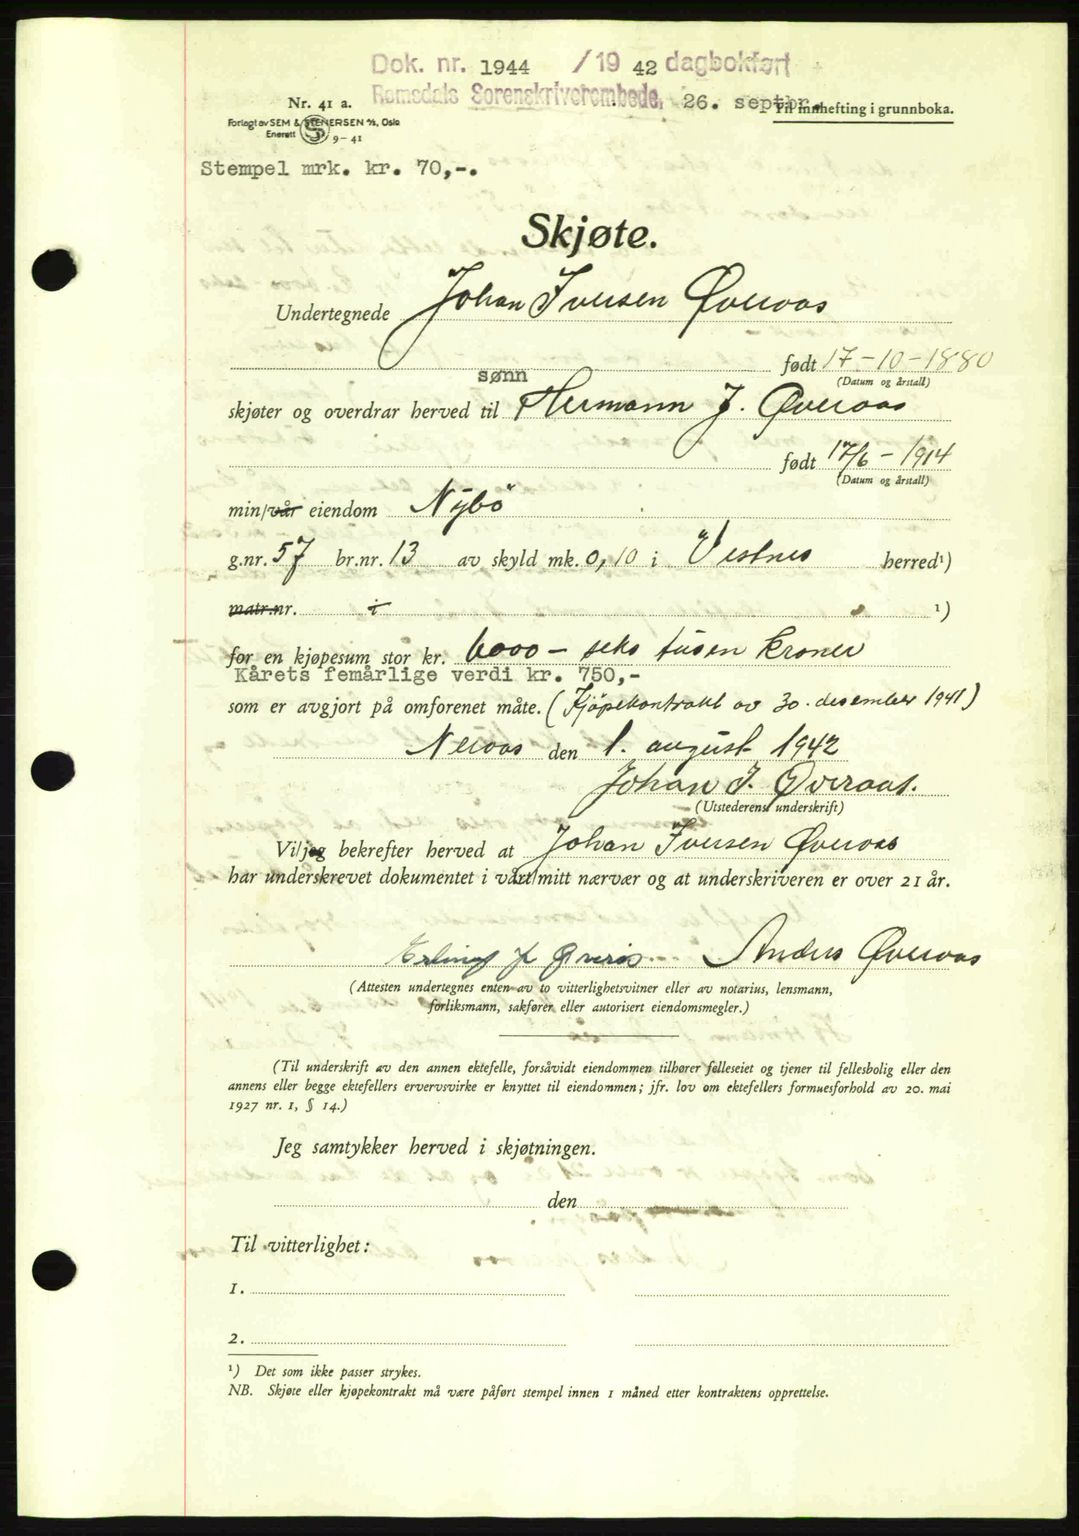 Dok. nr. 1944 /19 42 dagbokført
Romsdals Sorenskriverembede, 26. septbr.
Nr. 41 a.
Til innhefting i grunnboka.
Forlagt av SEM & STENERSEN A/S, Oslo
Enerett 9-41
Stempel mrk. kr. 70,-.
Skjøte.
Undertegnede Johan Iversen Øveraas
født 17-10-1880
(Datum og årstall)
sønn
skjøter og overdrar herved til Hermann J. Øveraas
født 17/6 - 1914
(Datum og årstall)
min/vår eiendom Nybö
g.nr. 57 br.nr. 13 av skyld mk. 0,10 i Vestnes herred¹)
matr.nr. i ¹)
for en kjøpesum stor kr. 6000 - seks tusen kroner
Kårets femårlige verdi kr. 750,-
som er avgjort på omforenet måte. (Kjøpekontrakt av 30. desember 1941)
Neraas den 1. august 1942
Johan I. Øveraas.
(Utstederens underskrift)
Vi/jeg bekrefter herved at Johan Iversen Øveraas
har underskrevet dokumentet i vårt/mitt nærvær og at underskriveren er over 21 år.
Erling J. Øverås Anders Øveraas
(Attesten undertegnes enten av to vitterlighetsvitner eller av notarius, lensmann,
forliksmann, sakfører eller autorisert eiendomsmegler.)
(Til underskrift av den annen ektefelle, forsåvidt eiendommen tilhører felleseiet og tjener til fellesbolig eller den
annens eller begge ektefellers ervervsvirke er knyttet til eiendommen; jfr. lov om ektefellers formuesforhold av 20. mai
1927 nr. 1, § 14.)
Jeg samtykker herved i skjøtningen.
den
Til vitterlighet:
1.
2.
¹) Det som ikke passer strykes.
NB. Skjøte eller kjøpekontrakt må være påført stempel innen 1 måned etter kontraktens opprettelse.